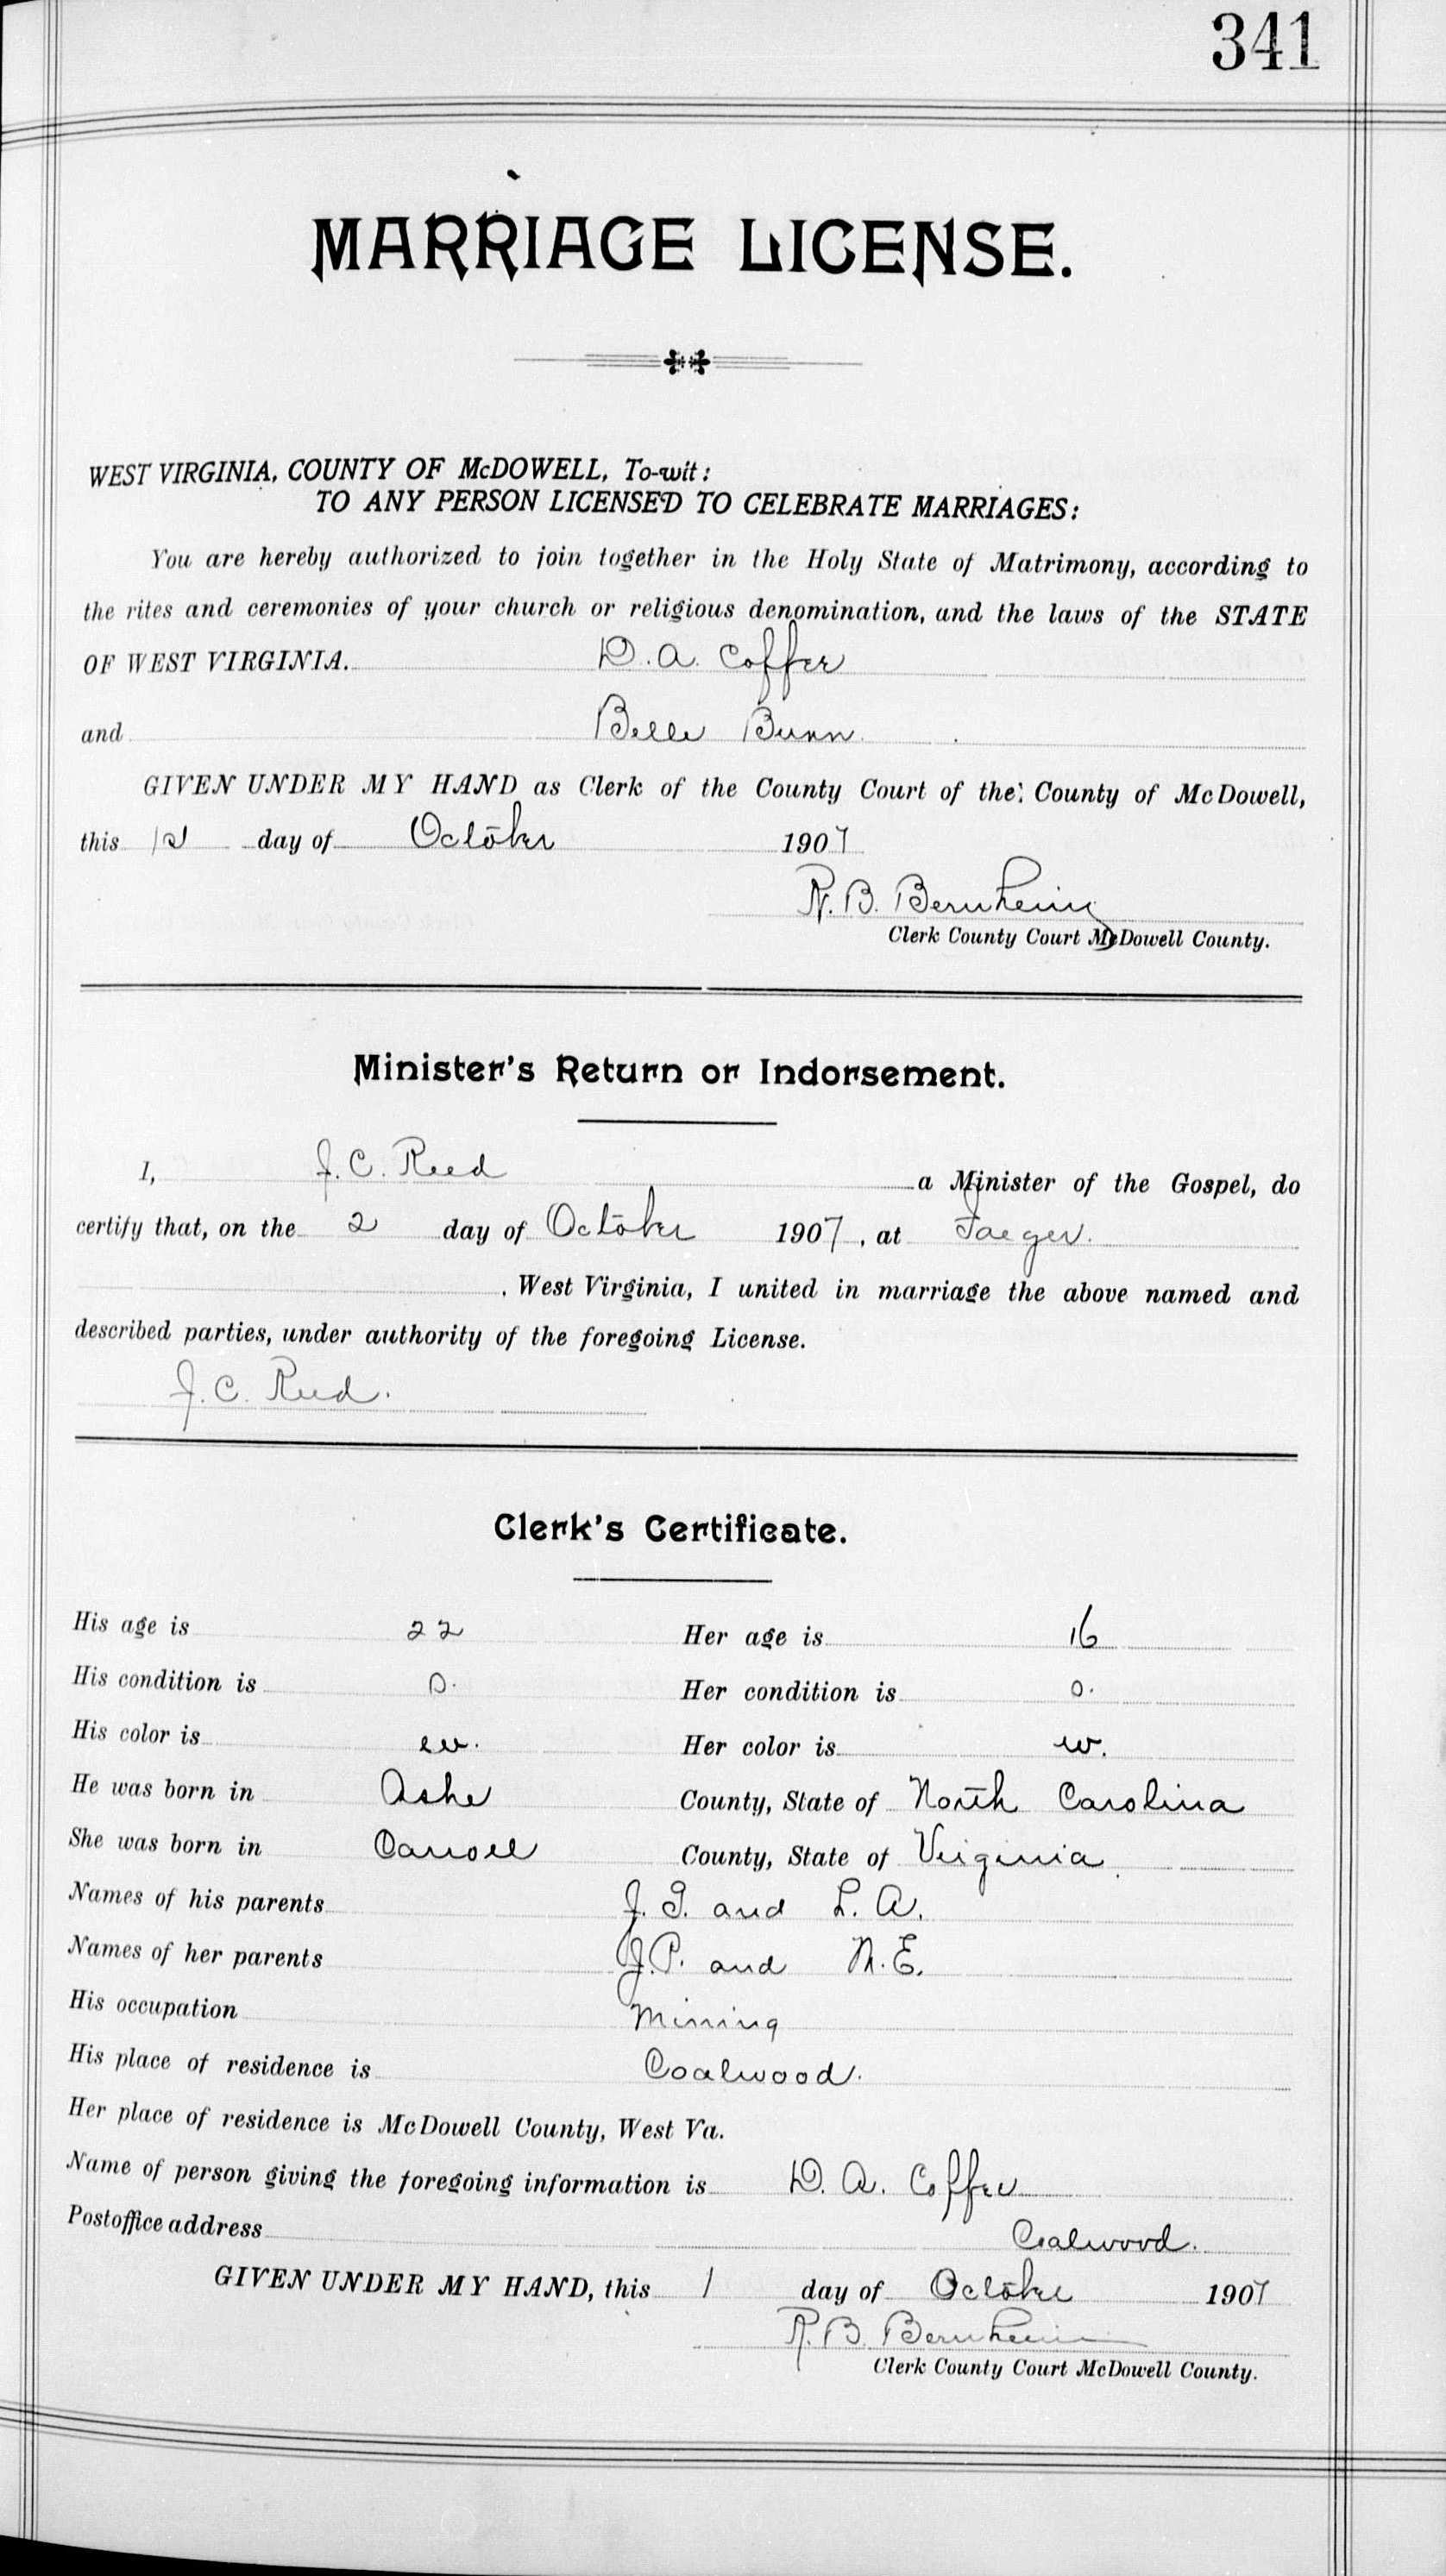 341
MARRIAGE LICENSE.
WEST VIRGINIA, COUNTY OF McDOWELL, To-wit:
TO ANY PERSON LICENSED TO CELEBRATE MARRIAGES:
You are hereby authorized to join together in the Holy State of Matrimony, according to
the rites and ceremonies of your church or religious denomination, and the laws of the STATE
OF WEST VIRGINIA. D. A. Coffer
and Belle Bunn.
GIVEN UNDER MY HAND as Clerk of the County Court of the County of McDowell,
this 1st day of October 1907
R. B. Bernheim
Clerk County Court McDowell County.
Minister's Return or Indorsement.
I, J. C. Reed a Minister of the Gospel, do
certify that, on the 2 day of October 1907, at Jaeger.
, West Virginia, I united in marriage the above named and
described parties, under authority of the foregoing License.
J. C. Reed.
Clerk's Certificate.
His age is 22 Her age is 16
His condition is S. Her condition is S.
His color is W. Her color is W.
He was born in Ashe County, State of North Carolina
She was born in Carroll County, State of Virginia
Names of his parents J. I. and L. A.
Names of her parents J. P. and N. E.
His occupation Mining
His place of residence is Coalwood.
Her place of residence is McDowell County, West Va.
Name of person giving the foregoing information is D. A. Coffer
Postoffice address Coalwood.
GIVEN UNDER MY HAND, this 1 day of October 1907
R. B. Bernheim
Clerk County Court McDowell County.